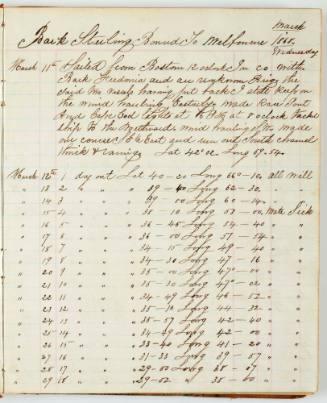 March
Bark Sterling Bound To Melbourne
Wednesday
March 11th Sailed from Boston 12 oclock in co with
Bark Fredonia and an unknown Brig the
said two vessels having put back I still keep on
the wind hauling Easterly made Race Point
And Cape Cod Lights at 6 PM at 8 oclock tacked
ship to the Westward wind hauling off made
our course to East and run out South channel
thick & raining Lat 42° 02 Long 69-54
March 12th 1 day out Lat 40-20 Long 66°-10 all well
13 2 " " " 39-40 Long 62-30 "
14 3 " " " 39-00 Long 60-14 "
15 4 " " " 38-10 Long 57-00 Mate Sick
16 5 " " " 36-45 Long 54-40 "
17 6 " " " 36-00 Long 51-24 "
18 7 " " " 34-15 Long 49-40 "
19 8 " " " 34-30 Long 47-16 "
20 9 " " " 35-00 Long 47°-00 "
21 10 " " " 35-30 Long 47°-02 "
22 11 " " " 34-49 Long 46-52 "
23 12 " " " 35-10 Long 44-32 "
24 13 " " " 35-57 Long 42-40 "
25 14 " " " 34-39 Long 42-00 "
26 15 " " " 33-40 Long 41-20 "
27 16 " " " 31-33 Long 39-07 "
28 17 " " " 29-00 Long 38-07 "
29 18 " " " 29-02 " 38-00 "